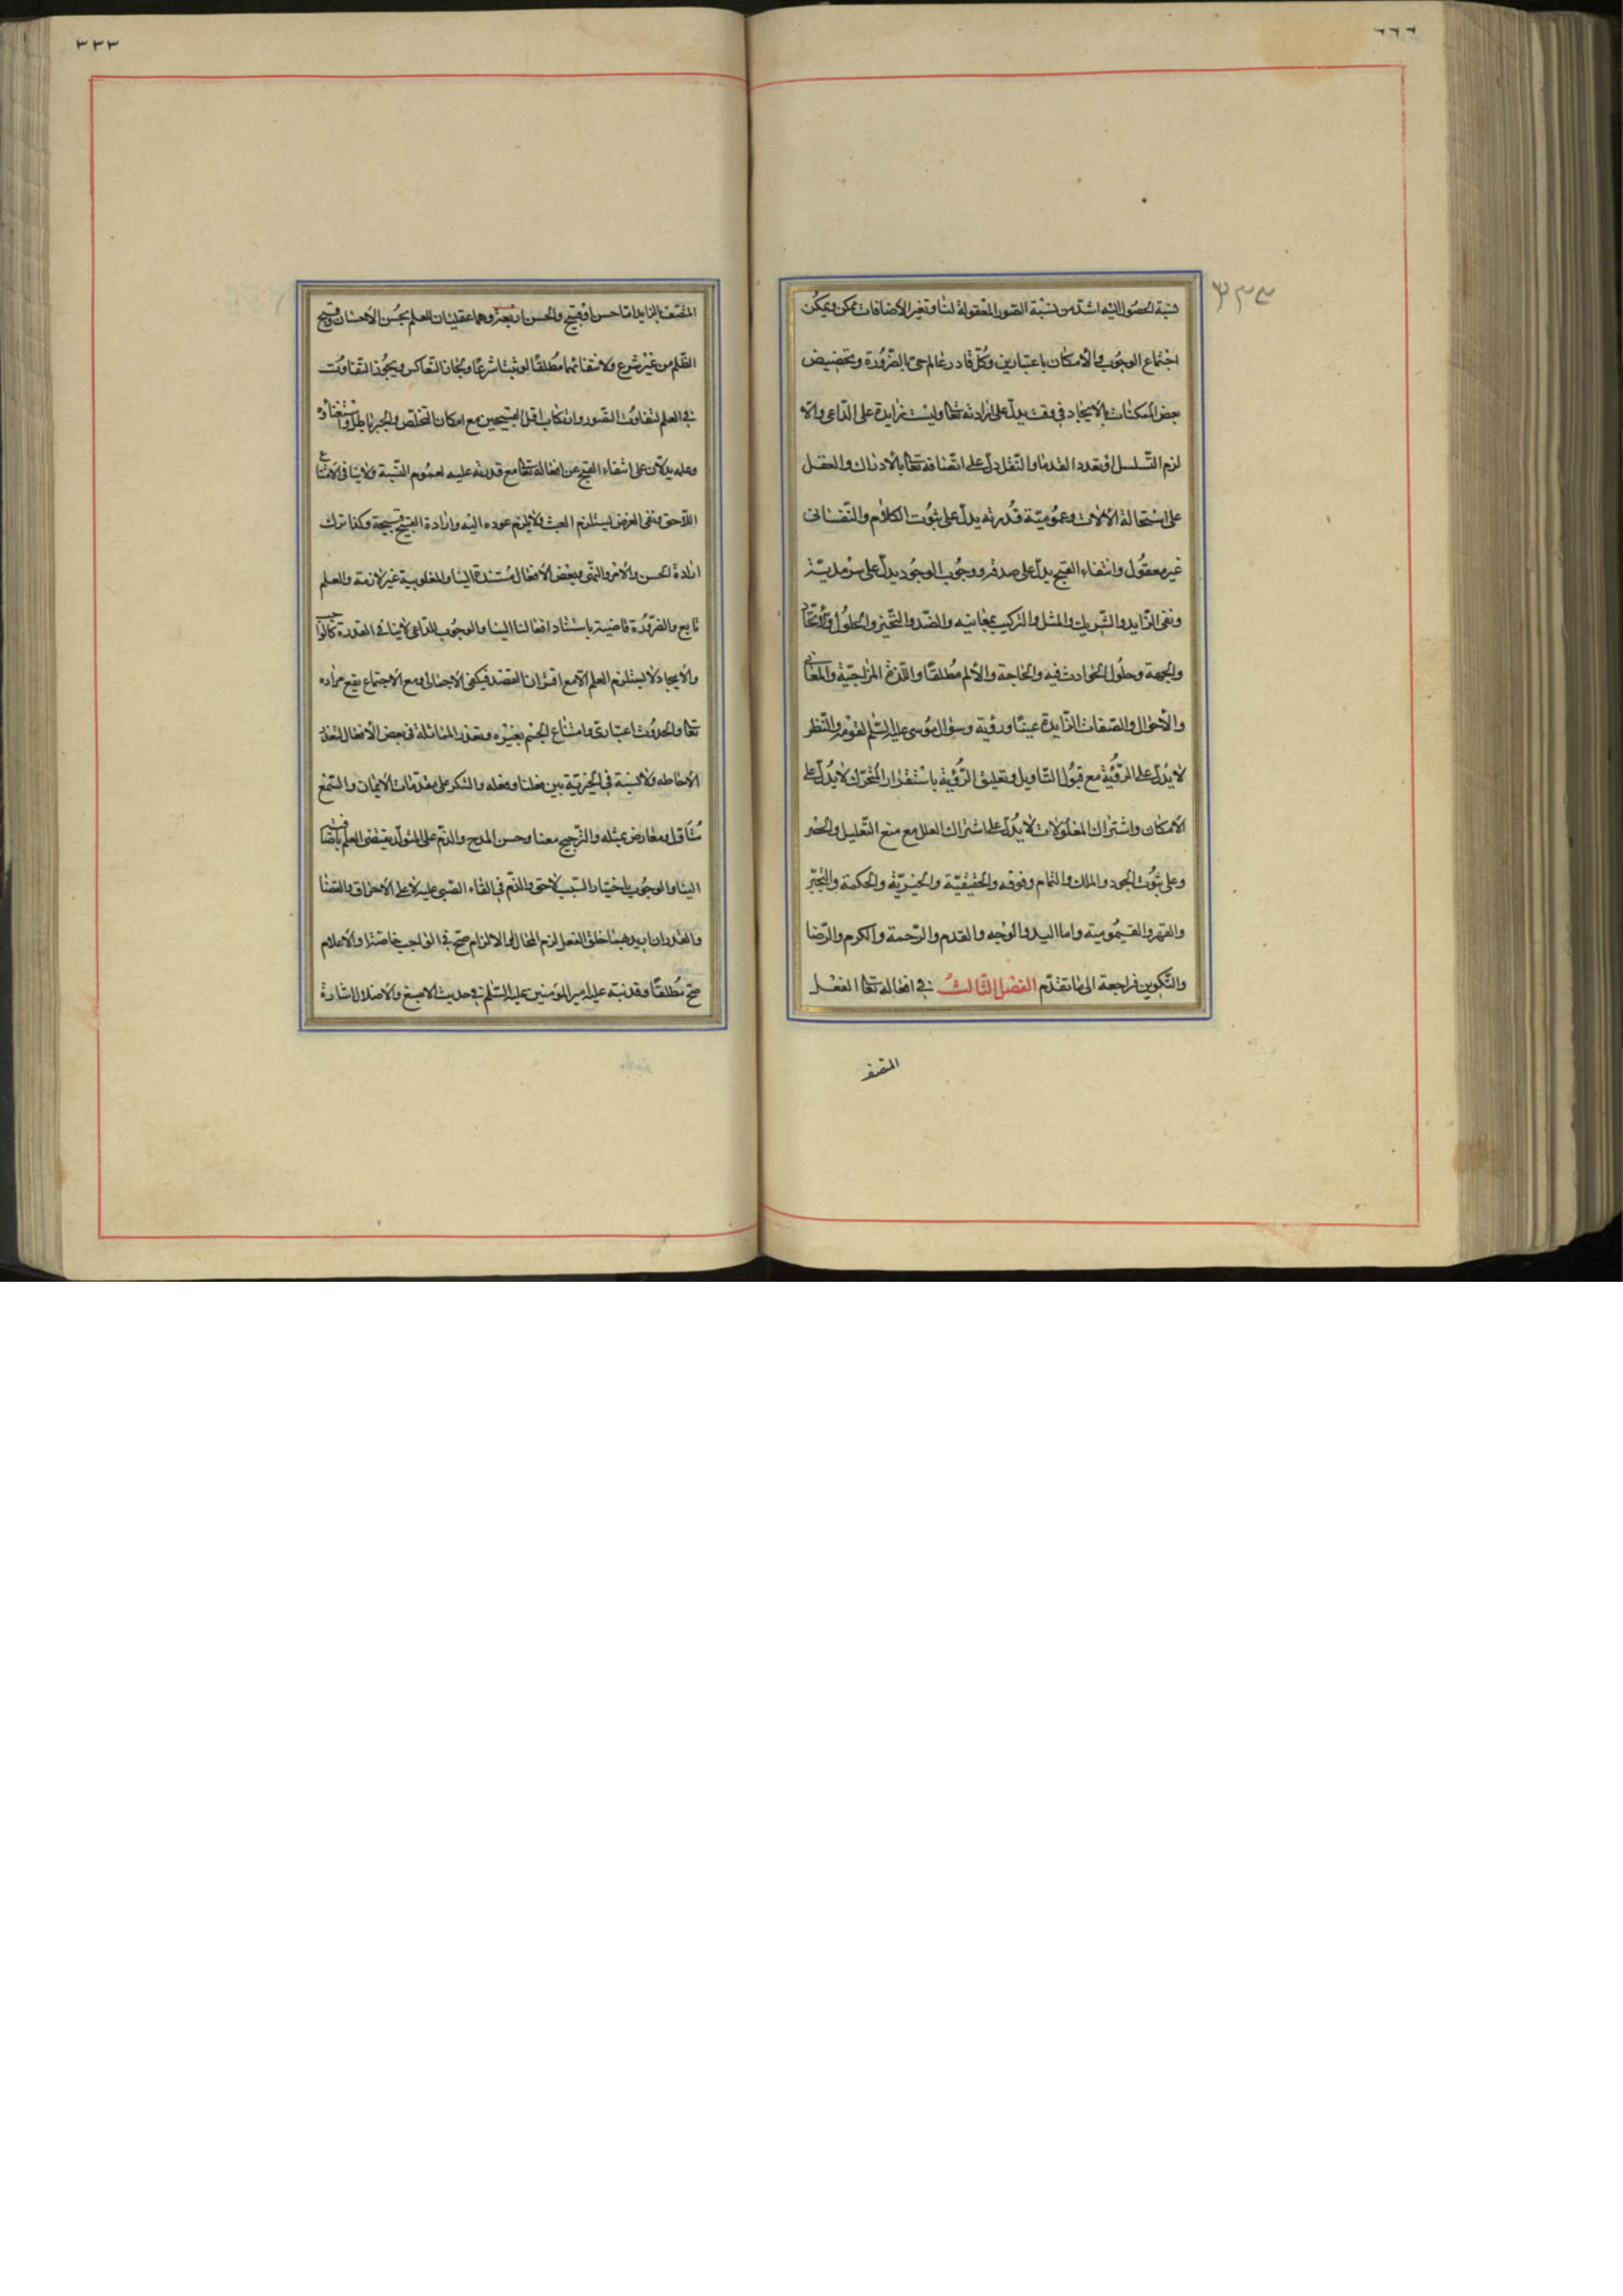 نسبة الحصول اليه اشد من نسبة الصور المعقولة لنا وتغير الاضافات ممكن ويمكن
اجتماع الوجوب والامكان باعتبارين وكل قادر عالم حي بالضرورة وتخصيص
بعض الممكنات بالايجاد في وقت يدل على ارادته تعالى وليست زايدة على الداعي والا
لزم التسلسل او تعدد القدماء والنقل دل على اتصافه تعالى بالادراك والعقل
على استحالة الآلات وعمومية قدرته يدل على ثبوت الكلام والنفساني
غير معقول وانتفاء القبح يدل على صدقه ووجوب الوجود يدل على سرمديته
ونفى الزايد والشريك والمثل والتركيب بمعانيه والضد والتحيز والحلول والاتحاد
والجهة وحلول الحوادث فيه والحاجة والالم مطلقا واللذة المزاجية والمعاني
والاحوال والصفات الزايدة عينا ورؤية وسؤال موسى عليه السلم لقومه والنظر
لا يدل على الرؤية مع قبول التاويل وتعليق الرؤية باستقرار المتحرك لا يدل على
الامكان واشتراك المعلولات لا يدل على اشتراك العلل مع منع التعليل والحصر
وعلى ثبوت الجود والملك والتمام وفوقه والحقيقية والخيرية والحكمة والتجبر
والقهر والقيومية واما اليد والوجه والقدم والرحمة والكرم والرضا
والتكوين فراجعة الى ما تقدم الفصل الثالث في افعاله تعالى الفعل
المتصف
٣٣٣
المتصف بالزايد اما حسن او قبيح والحسن اربعة وهما عقليان للعلم بحسن الاحسان وقبح
الظلم من غير شرع ولانتفائهما مطلقا لو ثبتا شرعا ولجاز التعاكس ويجوز التفاوت
في العلم لتفاوت التصور وارتكاب اقل القبيحين مع امكان التخلص والجبر باطل واستغناؤه
وعلمه يدلان على انتفاء القبح عن افعاله تعالى مع قدرته عليه لعموم النسبة ولا ينافي الامتناع
اللاحق ونفى الغرض يستلزم العبث ولا يلزم عوده اليه وارادة القبيح قبيحة وكذا ترك
ارادة الحسن والامر والنهي وبعض الافعال مستندة الينا والمغلوبية غير لازمة والعلم
تابع والضرورة قاضية باستناد افعالنا الينا والوجوب للداعي لا ينافي القدرة كالواجب
والايجاد لا يستلزم العلم الا مع اقتران القصد فيكفي الاجمالي ومع الاجتماع يقع مراده
تعالى والحدوث اعتباري وامتناع الجسم بغيره وتعذر المماثلة في بعض الافعال لتعذر
الاحاطه ولا نسبة في الخيرية بين فعلنا وفعله والشكر على مقدمات الايمان والسمع
متاول ومعارض بمثله والترجيح معنا وحسن المدح والذم على المتولد يقتضي العلم باضافته
الينا والوجوب باختيار السبب لاحق والذم في القاء الصبي عليه لا على الاحراق والقضا
والقدر ان اريد بهما خلق الفعل لزم المحال او الالزام صح في الواجب خاصة او الاعلام
صح مطلقا وقد نبه عليه امير المؤمنين عليه السلم في حديث الاصبغ والاضلال اشارة